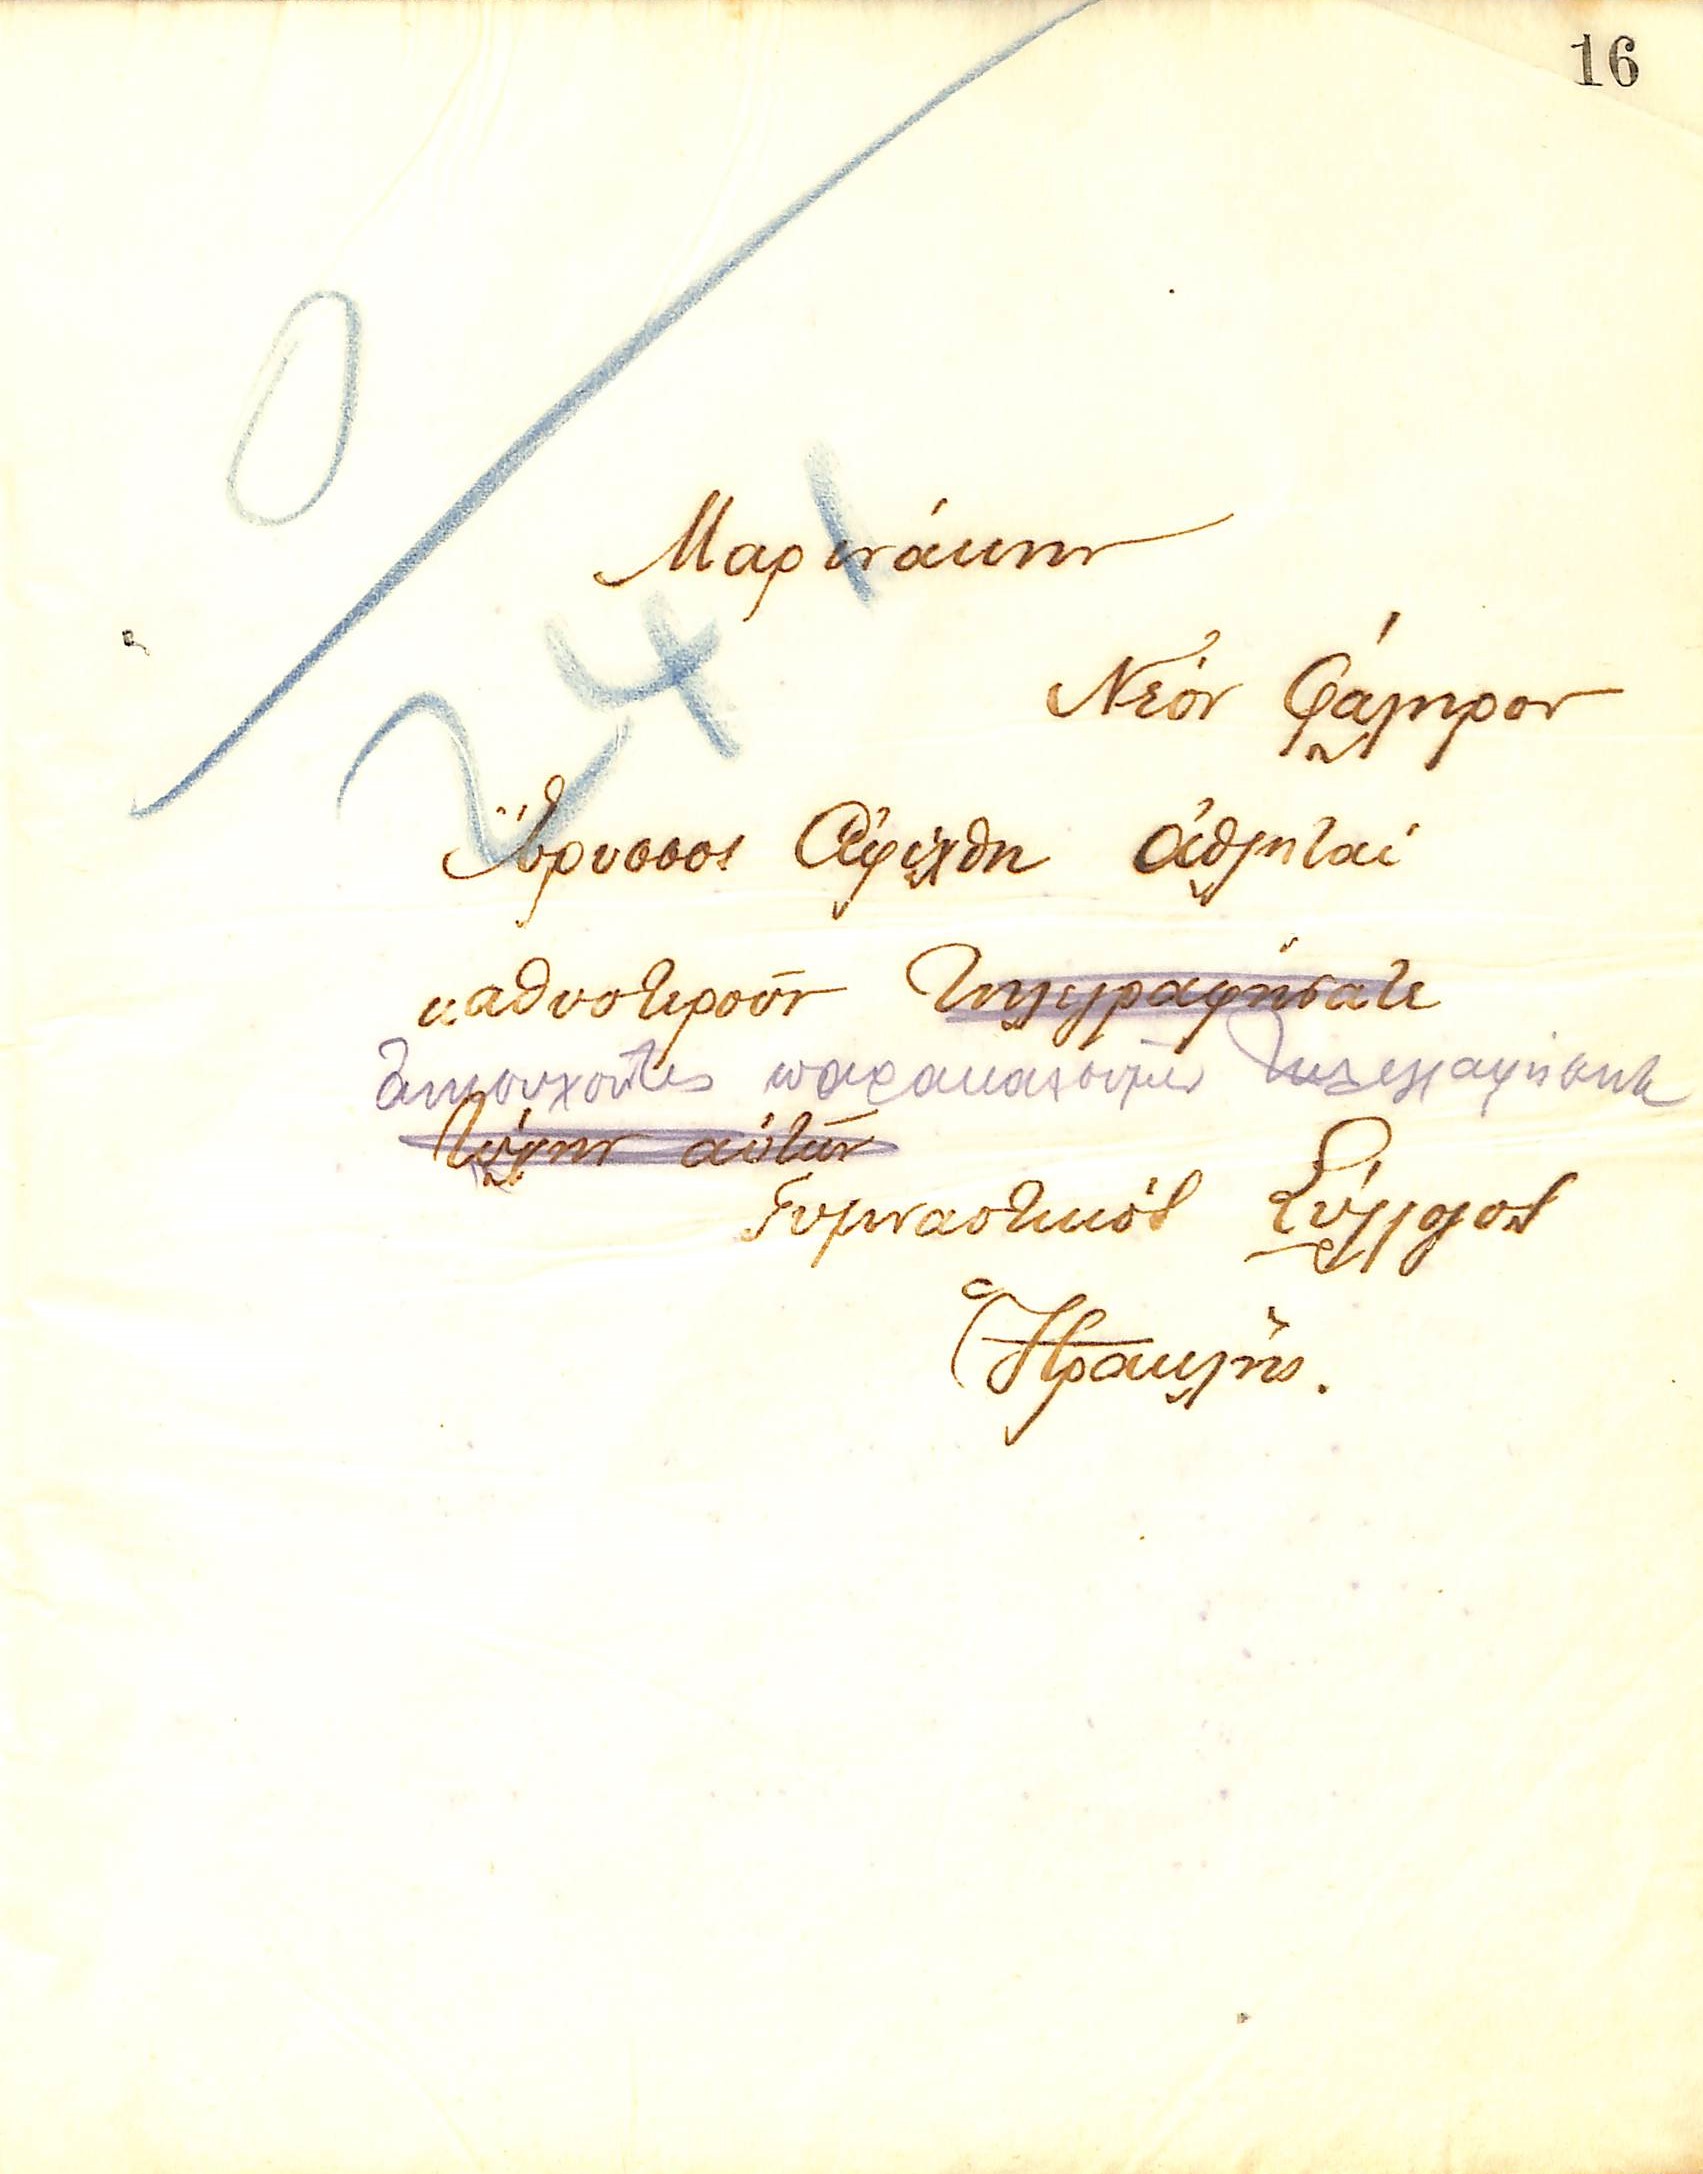 16
0
241
Μαρινάκην
Νέον Φάληρον
Άβρυσσος Ἀφίχθη ἀθληταί
καθυστεροῦν τηλεγραφήσατε
ἀνησυχοῦντες παρακαλοῦμεν τηλεγραφήσητε
τύχην αὐτῶν
Γυμναστικὸς Σύλλογος
Ἡρακλῆς.